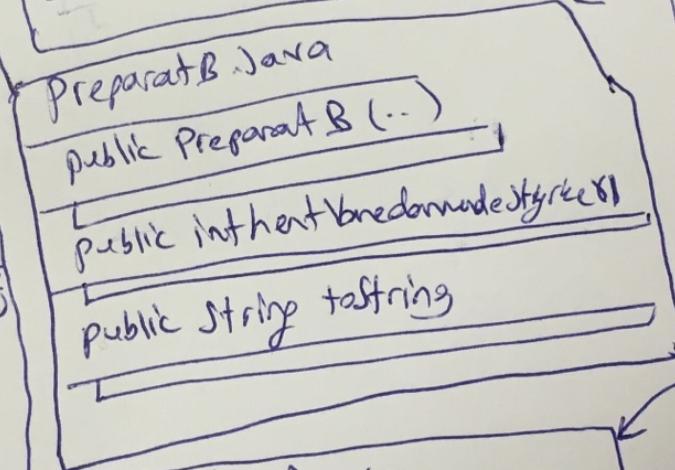 PreparatB.Java
public PreparatB (..)
public int hentVanedannendeStyrke()
public String toString